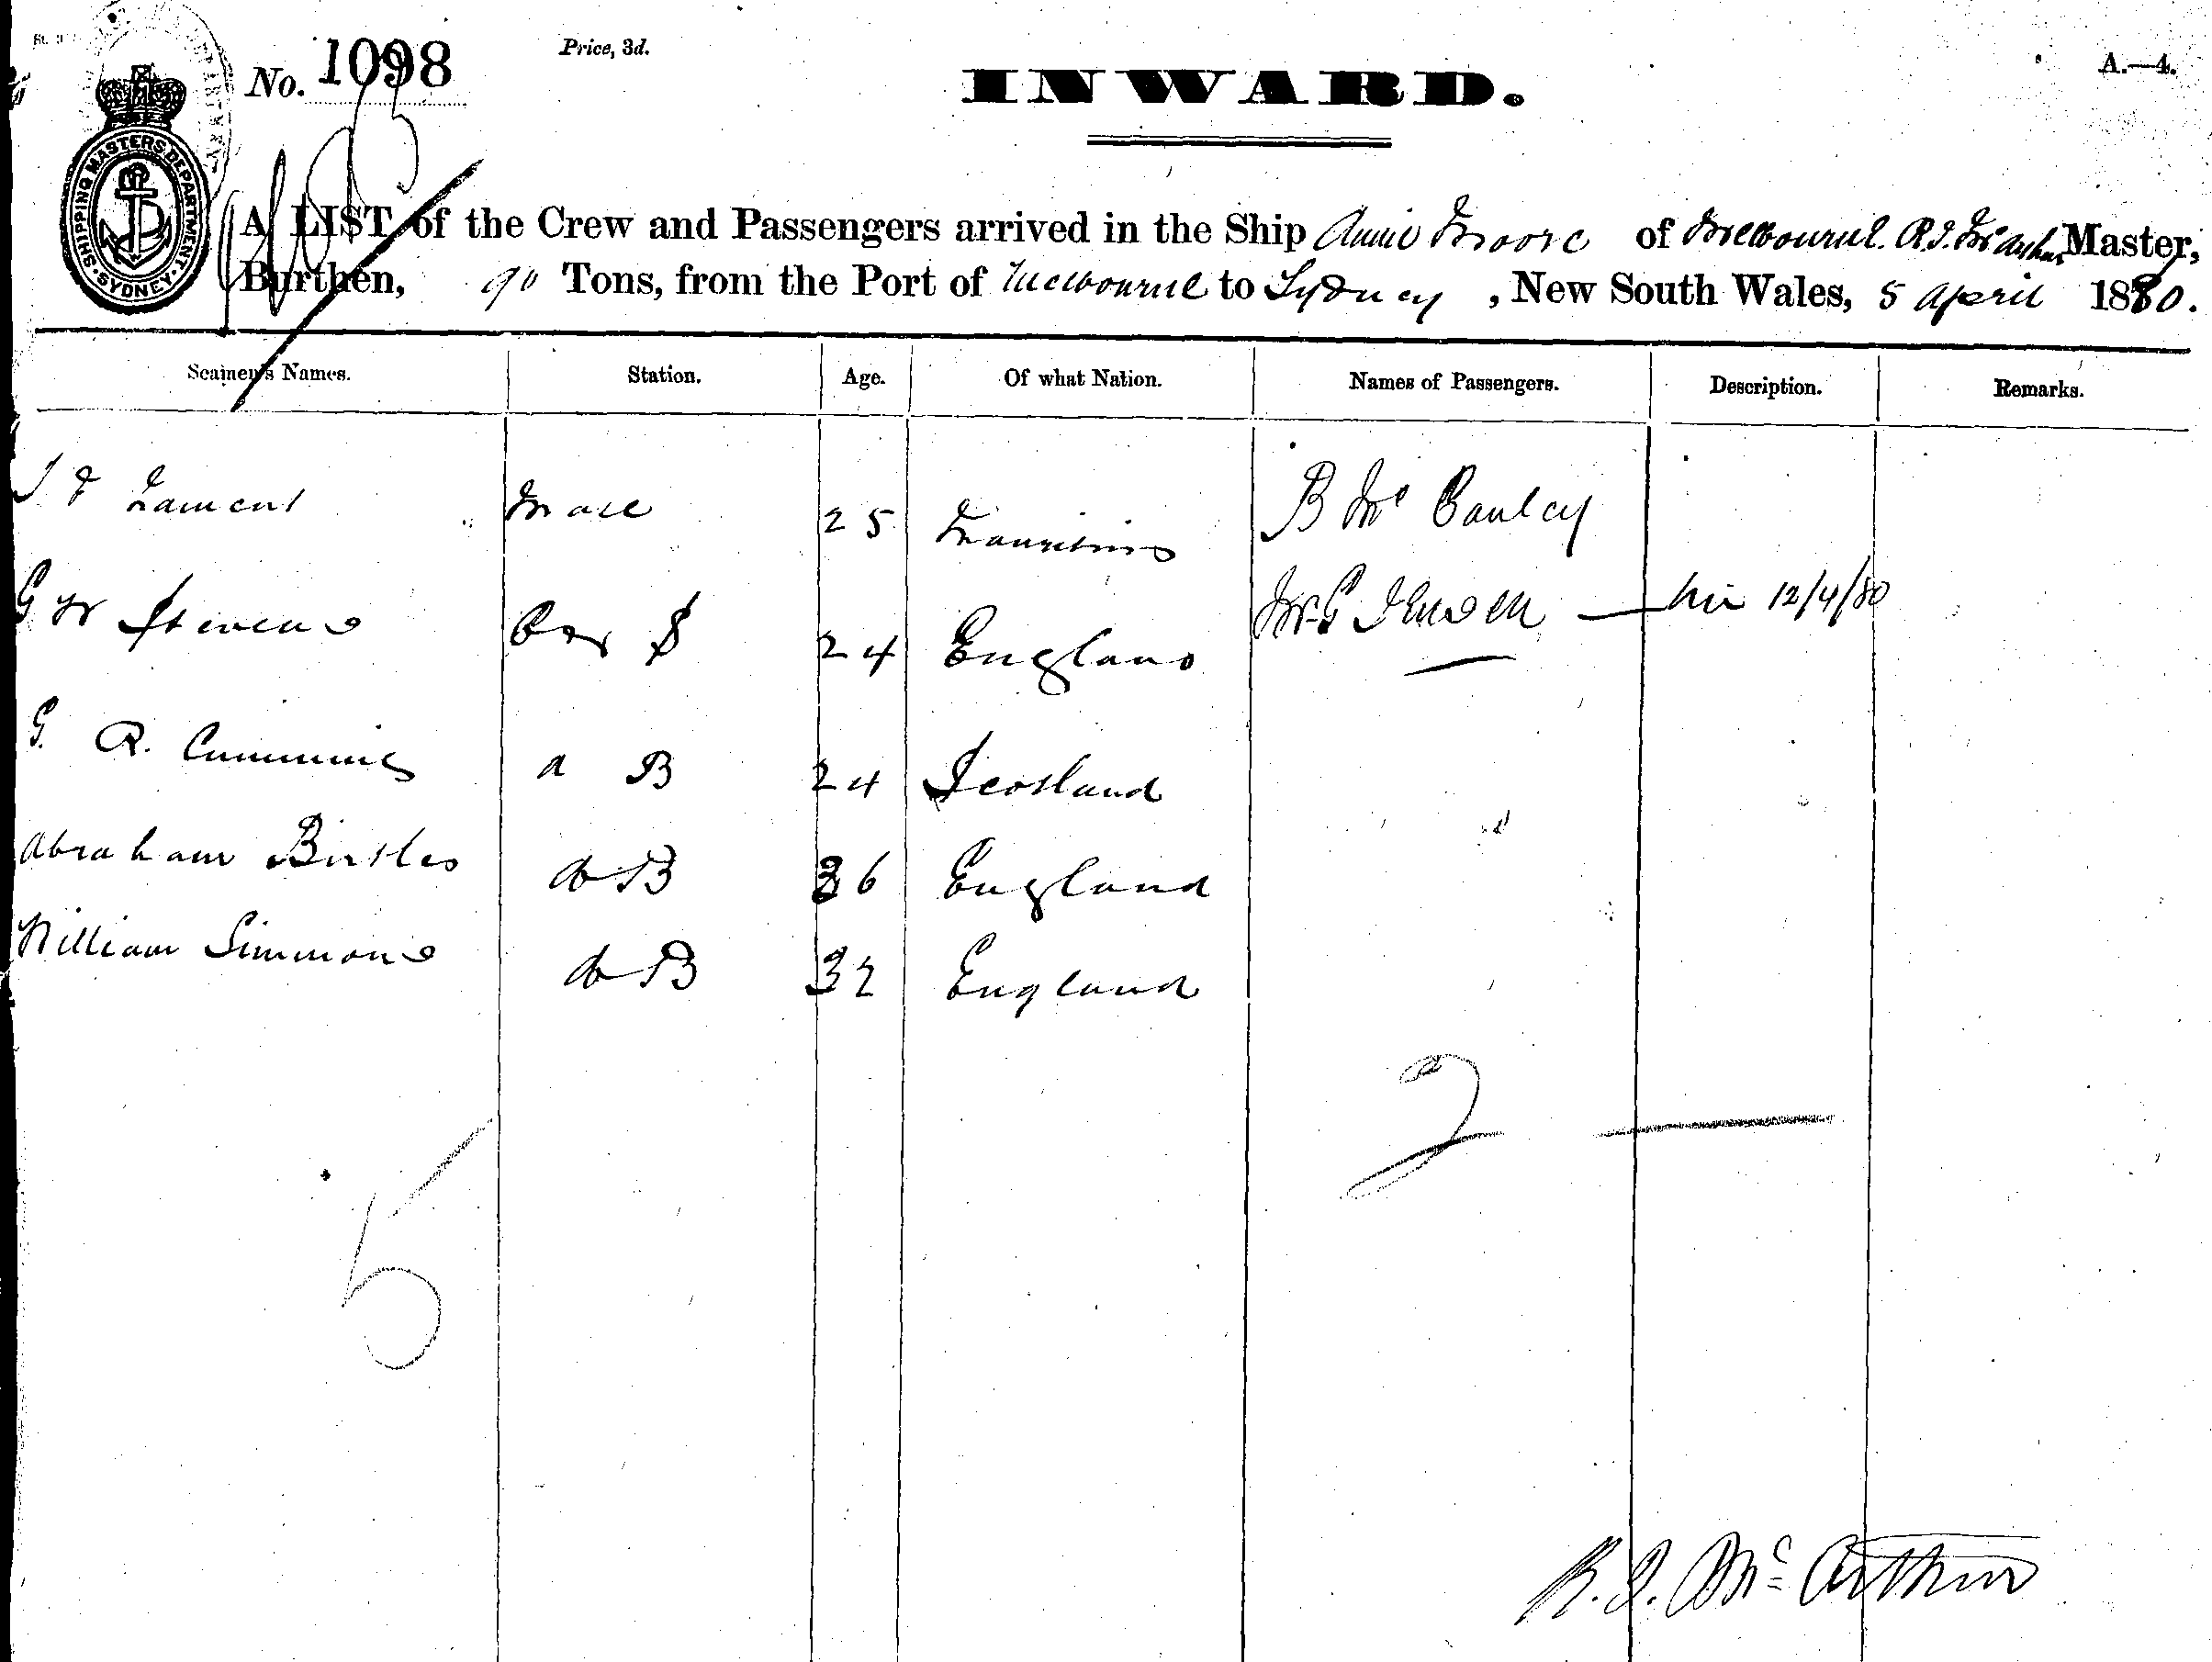 No. 1098
Price, 3d.
INWARD.
A.—4.
SHIPPING MASTERS DEPARTMENT. SYDNEY
A LIST of the Crew and Passengers arrived in the Ship Annie Moore of Melbourne. R. J. McArthur Master,
Burthen, 90 Tons, from the Port of Melbourne to Sydney, New South Wales, 5 April 1880.
Seamen's Names. Station. Age. Of what Nation. Names of Passengers. Description. Remarks.
J F Lament Mate 25 Mauritius B Mc Cauley
G W Stevens 24 England 12/4/80
G. R. Cumming A B 24 Scotland
Abraham Birtles A B 36 England
William Simmons A B 32 England
5 2
R. J. Mc Arthur